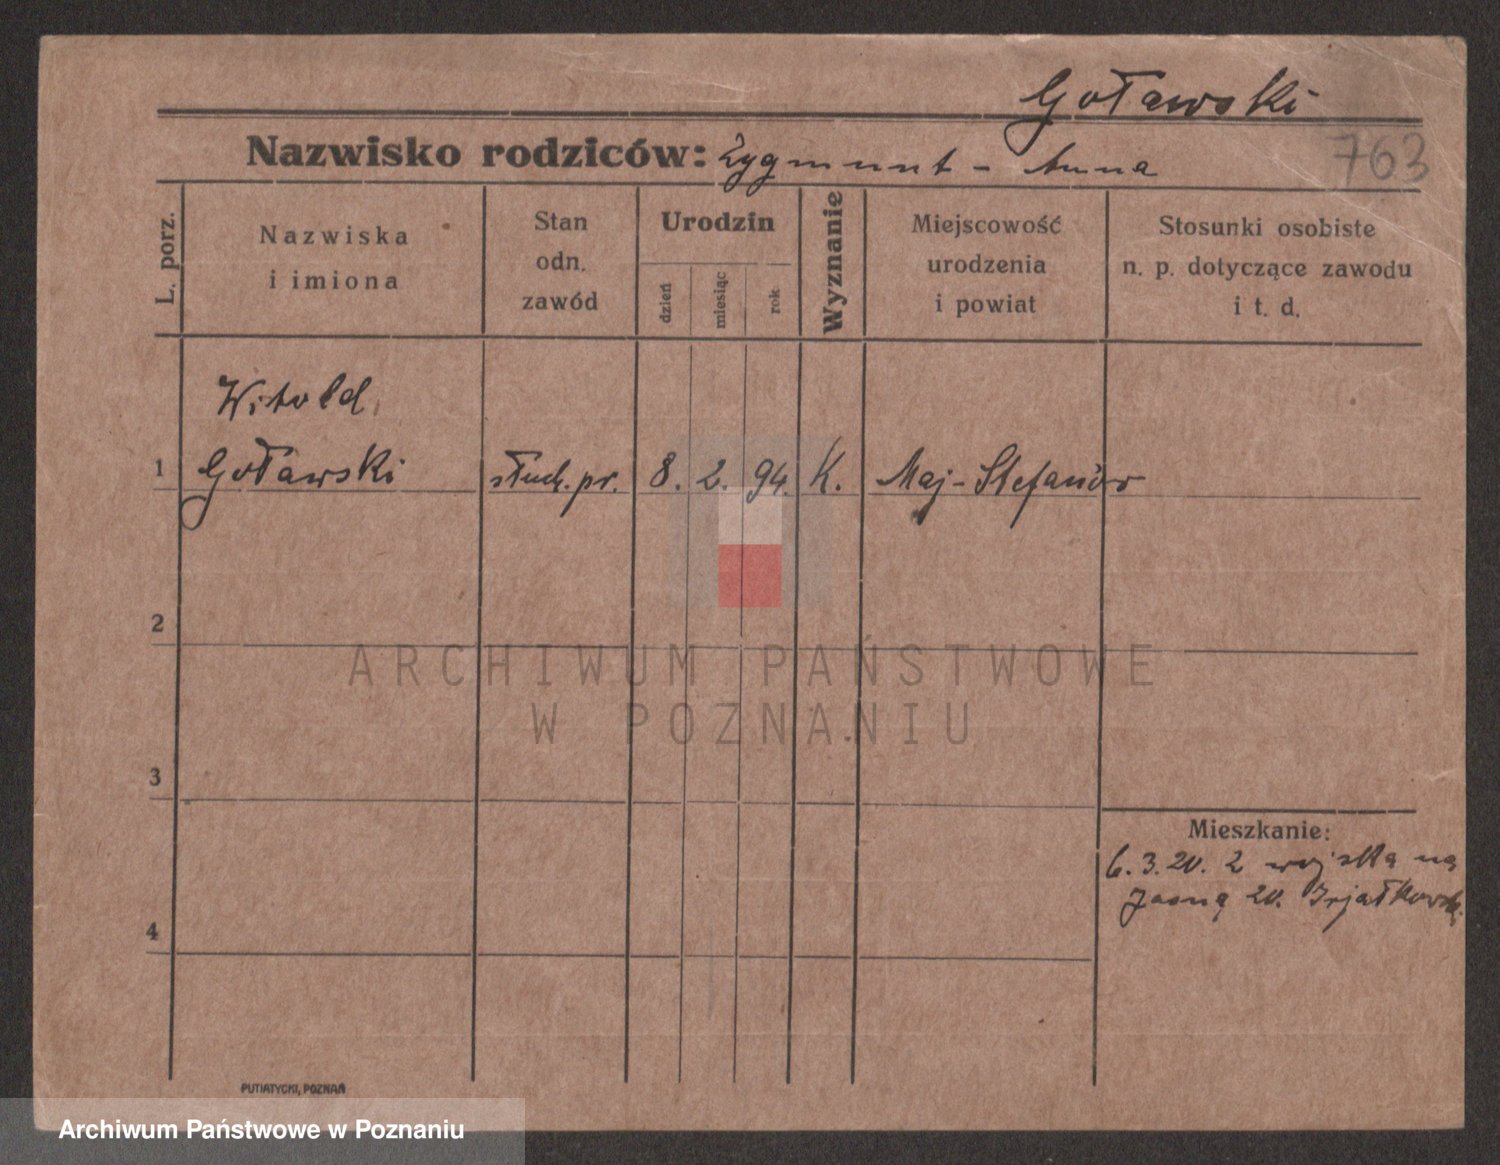 Goławski
763
Nazwisko rodziców: Zygmunt - Anna
L. porz.
Nazwiska
i imiona
Stan
odn.
zawód
Urodzin
dzień
miesiąc
rok
Wyznanie
Miejscowość
urodzenia
i powiat
Stosunki osobiste
n. p. dotyczące zawodu
i t. d.
Witold
1 Goławski słuch. pr. 8. 2. 94. K. Maj-Stefanów
2
ARCHIWUM PAŃSTWOWE
W POZNANIU
3
Mieszkanie:
6. 3. 20. z wojska na
Jasną 20.
4
PUTIATYCKI, POZNAŃ
Archiwum Państwowe w Poznaniu